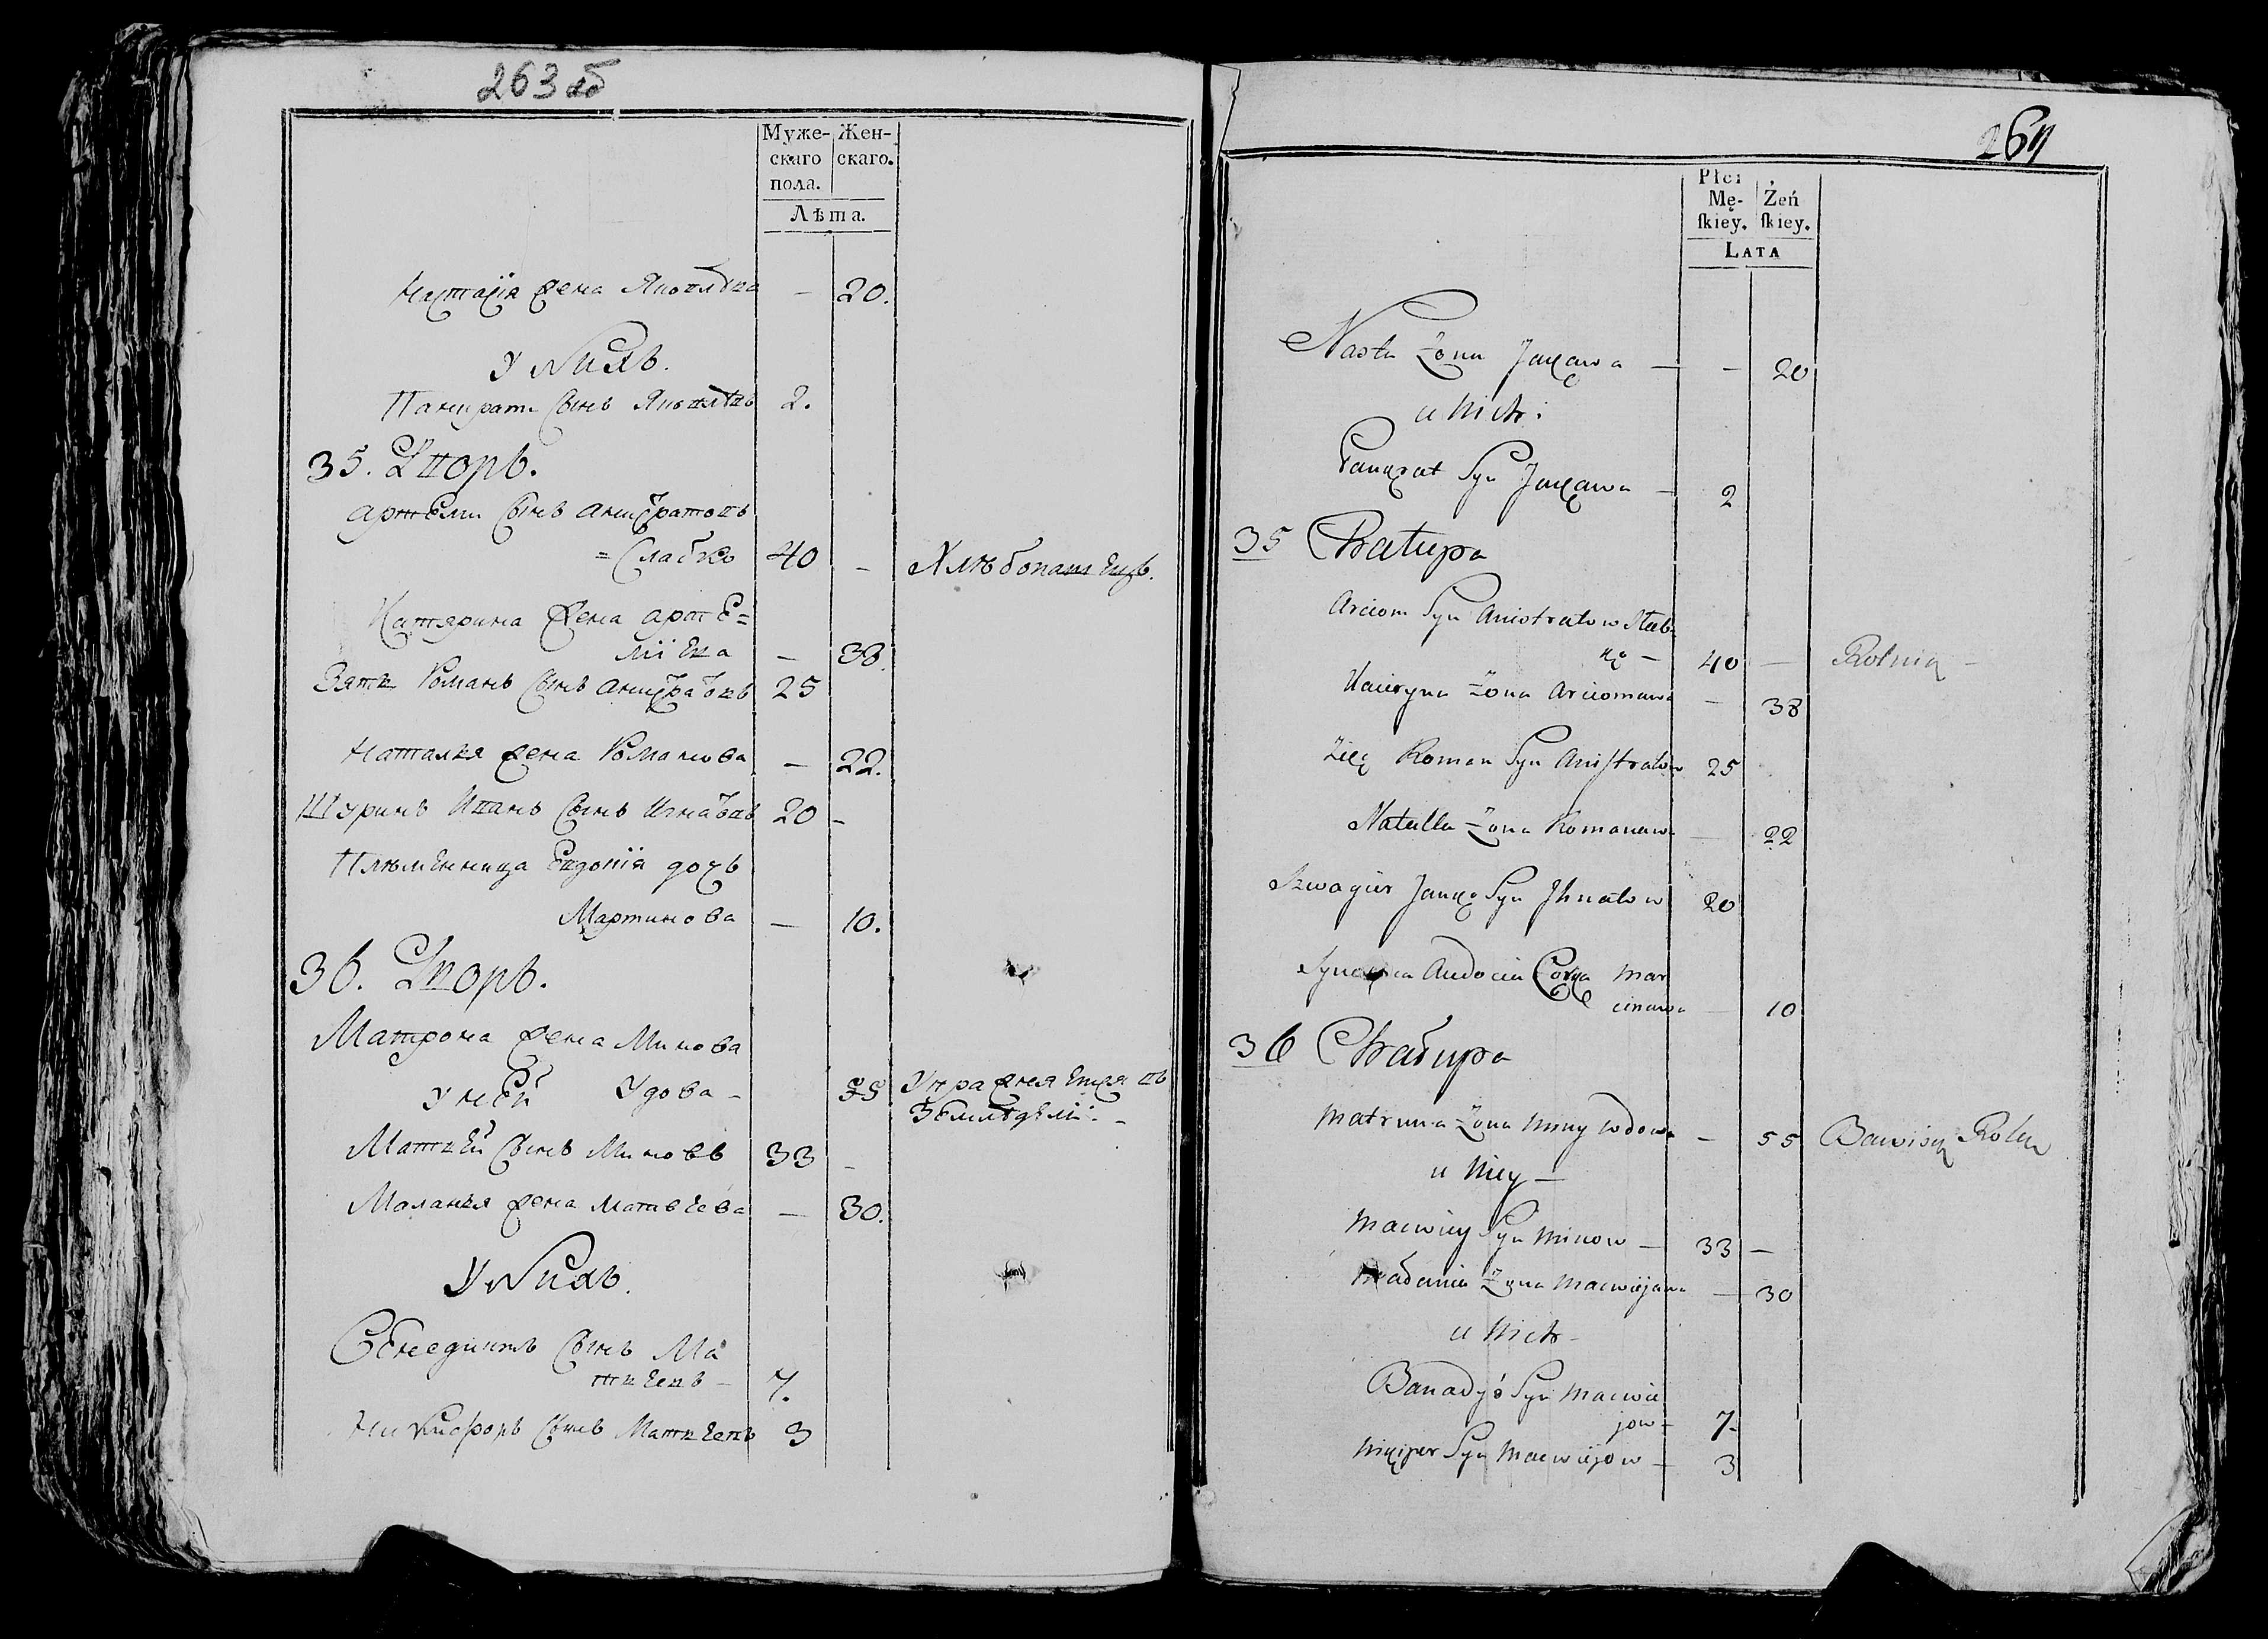 263 об
Муже- Жен-
скаго скаго.
пола.
Лѣта.
Настасія жена Яковлева — 20.
У Нихъ.
Панкратъ сынъ Яковлевъ 2.
35. Дворъ.
Артеми сынъ Анистратовъ
= Слабко 40 — Хлѣбопашецъ.
Катярина жена Арте=
міева — 38.
Зять Романъ сынъ Анистратовъ 25
Наталья жена Романова — 22.
Шуринъ Иванъ сынъ Игнатовъ 20 –
Племянница Евдокія дочь
Мартинова — 10.
36. Дворъ.
Матрона жена Минова
у ней Удова – 55 Упражняется въ
Земледѣліи. –
Матвей сынъ Миновъ 33 –
Маланья жена Матвеева — 30.
У Нихъ.
Бенедиктъ сынъ Ма
твеевъ – 7.
Никифоръ сынъ Матвеевъ 3
264
Płci
Mę- Żeń
ſkiey. ſkiey.
LATA
Nasta Żona Jakowa — – 20
u Nich:
Pankrat Syn Jakowa – 2
35 Chatupa
Arciom Syn Anistratow Słab
ko – 40 — Rolnik –
Kacieryna Żona Arciomowa – 38
Zięć Roman Syn Anistratow 25
Natalla Żona Romanowa — 22
Szwagier Janko Syn Ihnatow 20
Audocia Corka Mar
cinowa – 10
36 Chatupa
Matruna Żona Miny Wdowa – 55 Bawiący Rolą
u Niey —
Maciwiey Syn Minow – 33 –
Małania Żona Maciwiejowa – 30
u Nich –
Banadyś Syn Maciwie
jow – 7.
Nikiper Syn Maciwiejow – 3